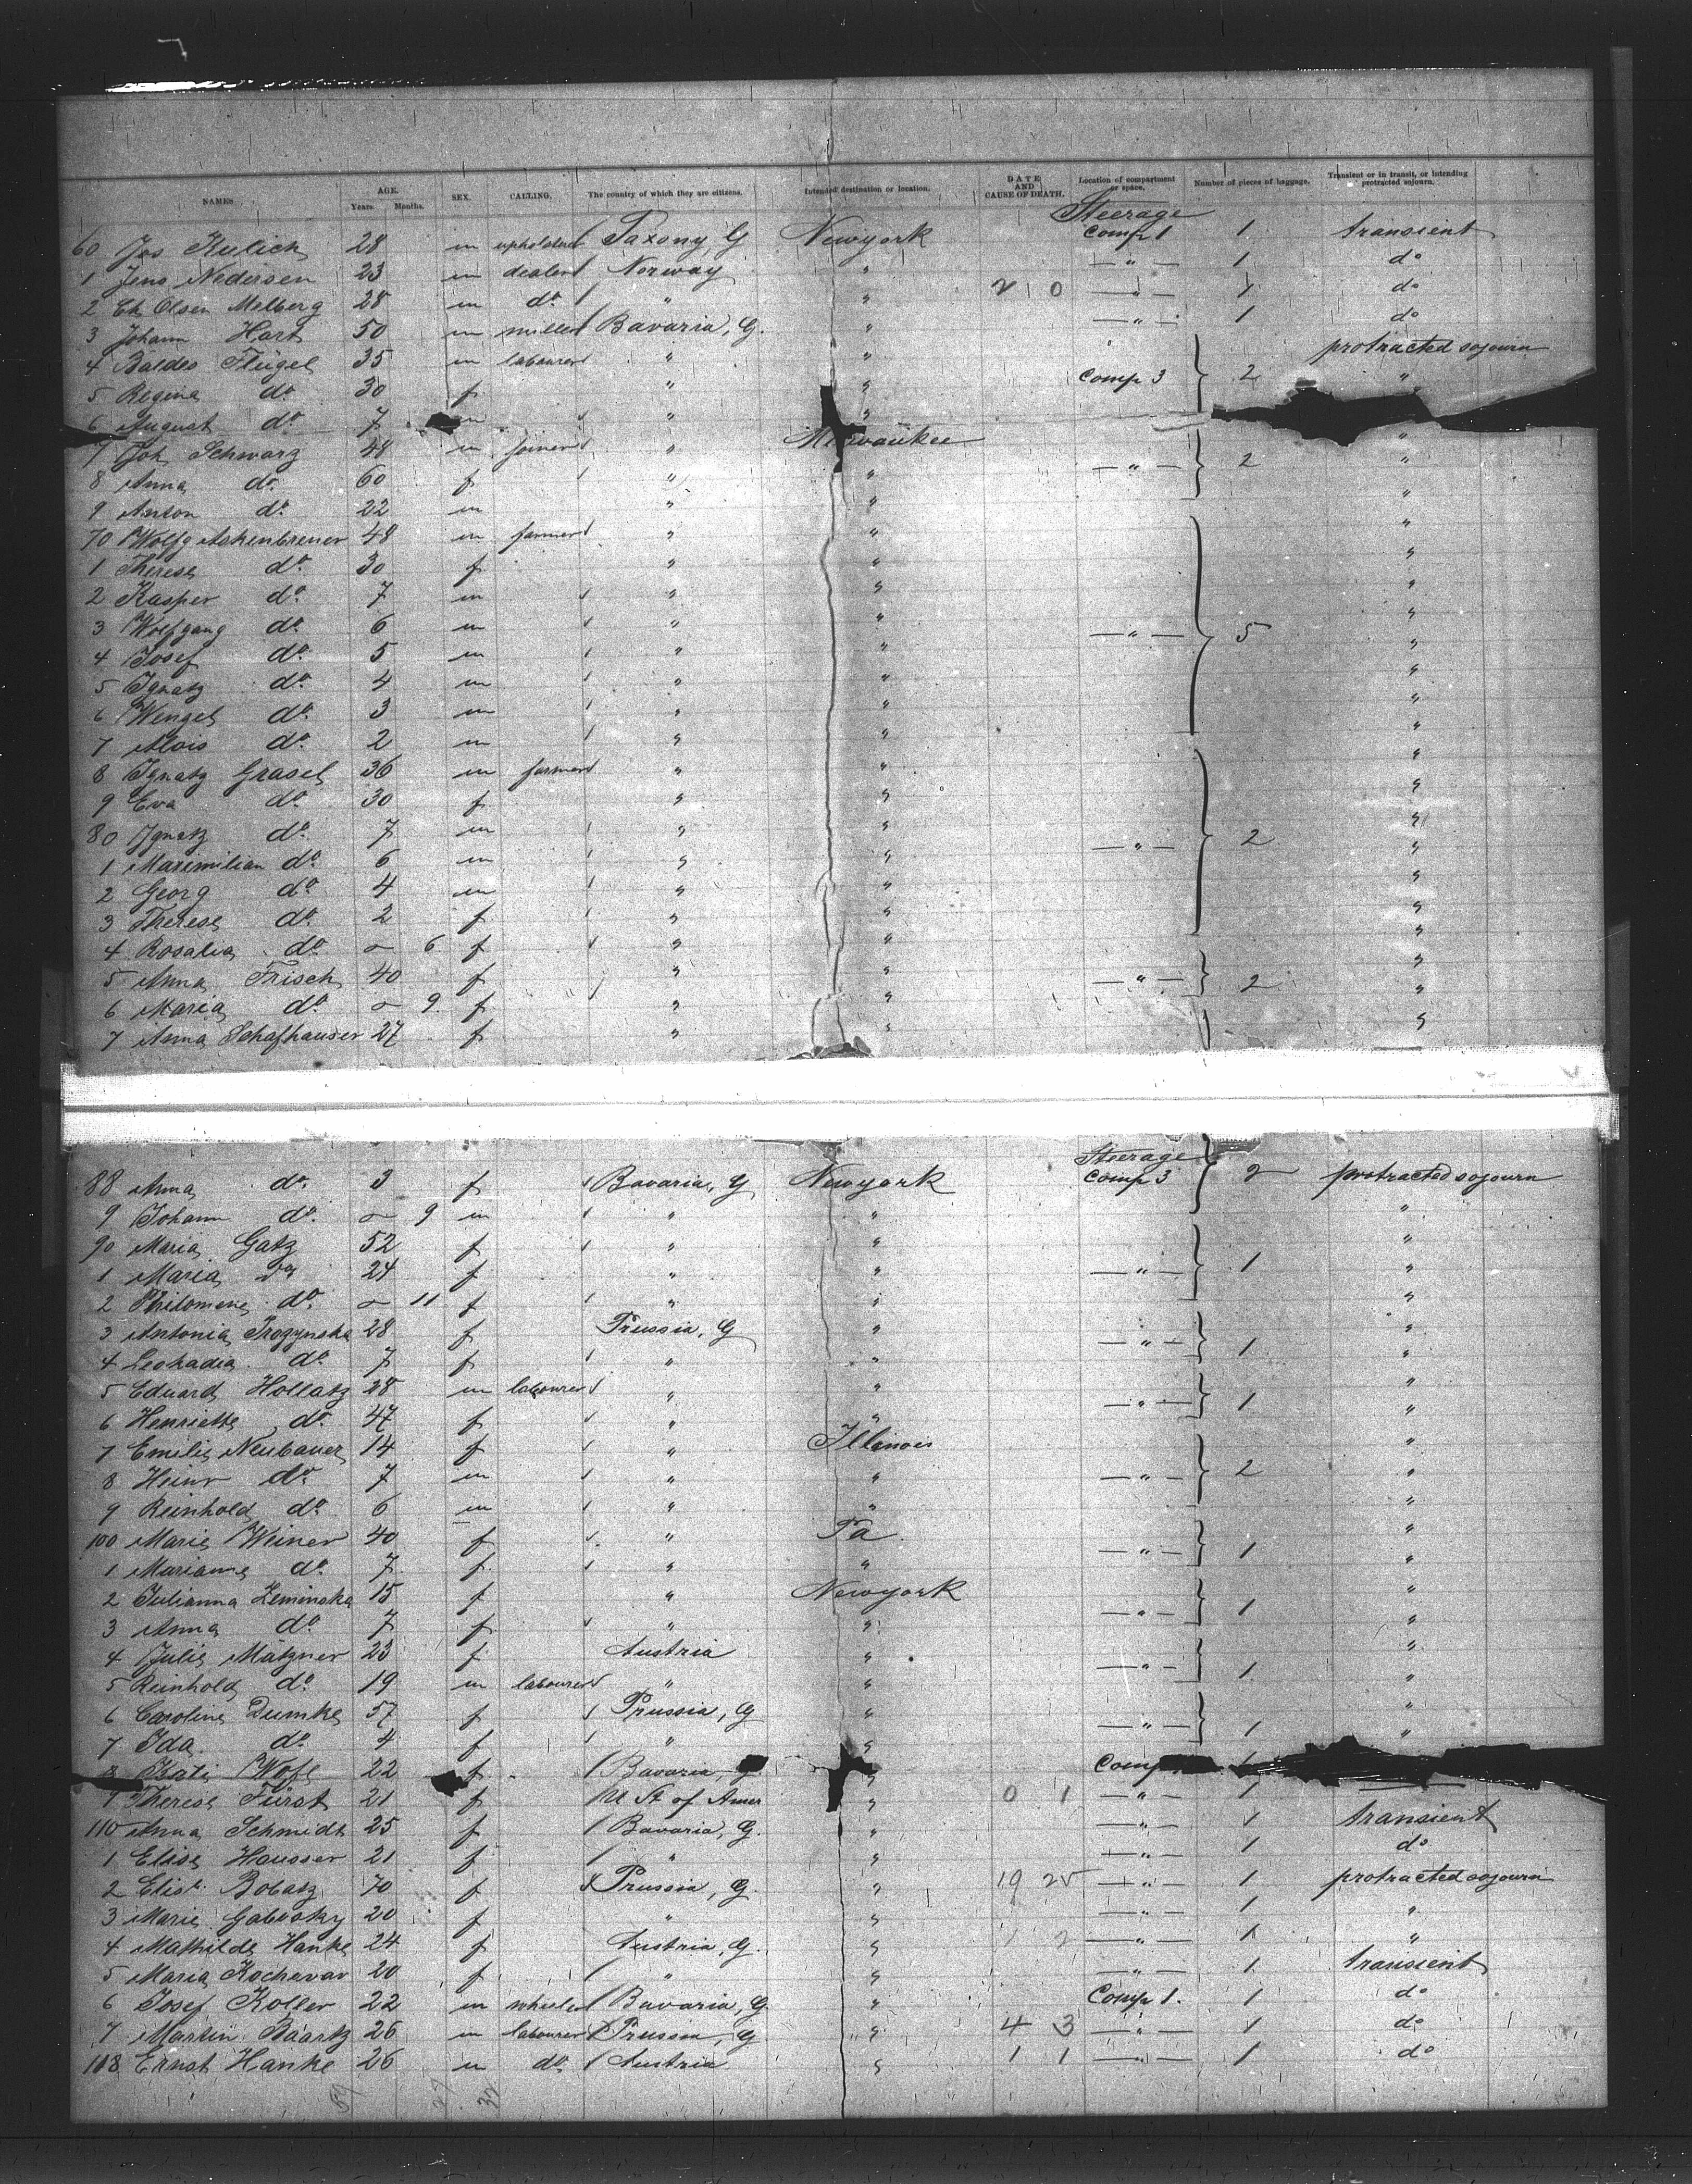 NAMES AGE. Years. Months. SEX. CALLING. The country of which they are citizens. Intended destination or location. DATE AND CAUSE OF DEATH. Location of compartment or space. Number of pieces of baggage. Transient or in transit, or intending protracted sojourn.
Steerage
60 Jos Kulich 28 m upholsterer Saxony, G Newyork Comp 1 1 transient
1 Jens Nedersen 23 m dealer Norway " — " — 1 do
2 Ch Olsen Melberg 28 m do " " 2 0 — " — 1 do
3 Johann Hart 50 m miller Bavaria, G. " — " — 1 do
4 Baldes Flügel 35 m labourer " " " protracted sojourn
5 Regina do 30 f " " Comp 3 2 "
6 August do 7 m " "
7 Joh Schwarz 48 m joiner " Milwaukee "
8 Anna do 60 f " " — " — 2 "
9 Anton do 22 m " " "
70 Wolfg Aschenbrener 48 m farmer " " "
1 Therese do 30 f " " "
2 Kasper do 7 m " " "
3 Wolfgang do 6 m " " — " — 5 "
4 Josef do 5 m " " "
5 Ignatz do 4 m " " "
6 Wenzel do 3 m " " "
7 Alois do 2 m " " "
8 Ignatz Grasel 36 m farmer " " "
9 Eva do 30 f " " "
80 Ignatz do 7 m " " — " — 2 "
1 Maximilian do 6 m " " "
2 Georg do 4 m " " "
3 Therese do 2 f " " "
4 Rosalia do - 6 f " " "
5 Anna Frisch 40 f " " — " — 2 "
6 Maria do - 9 f " " "
7 Anna Schafhauser 27 f " " "
Steerage
88 Anna do 3 f Bavaria, G Newyork Comp 3 2 protracted sojourn
9 Johann do - 9 m " " "
90 Maria Gatz 52 f " " "
1 Maria do 24 f " " — " — 1 "
2 Philomene do - 11 f " " "
3 Antonia Trozynska 28 f Prussia, G " — " — 1 "
4 Leokadia do 7 f " " "
5 Eduard Hollatz 28 m labourer " " — " — 1 "
6 Henriette do 47 f " " "
7 Emilie Neubauer 14 f " Illinois "
8 Heinr do 7 m " " — " — 2 "
9 Reinhold do 6 m " " "
100 Marie Weiner 40 f " Pa. — " — 1 "
1 Marianne do 7 f " " "
2 Julianna Zeminska 15 f " Newyork — " — 1 "
3 Anna do 7 f " " "
4 Julie Mätzner 23 f Austria " — " — 1 "
5 Reinhold do 19 m labourer " " "
6 Caroline Dumke 57 f Prussia, G " — " — 1 "
7 Ida do 4 f " " "
8 Kati Wofl 22 f Bavaria, G. " Comp
9 Therese Fürst 21 f U St of Amer " 0 1 — " — 1
110 Anna Schmidt 25 f Bavaria, G. " — " — 1 transient
1 Elise Hausser 21 f " " — " — 1 do
2 Elise Bobatz 70 f Prussia, G. " 19 25 — " — 1 protracted sojourn
3 Marie Gabisky 20 f " " — " — 1 "
4 Mathilde Hanke 24 f Austria, G. " 1 2 — " — 1 "
5 Maria Kochevar 20 f " " — " — 1 transient
6 Josef Koller 22 m Bavaria, G. " Comp 1. 1 do
7 Martin Baartz 26 m labourer Prussia, G " 4 3 — " — 1 do
118 Ernst Hanke 26 m do Austria " 1 1 — " — 1 do